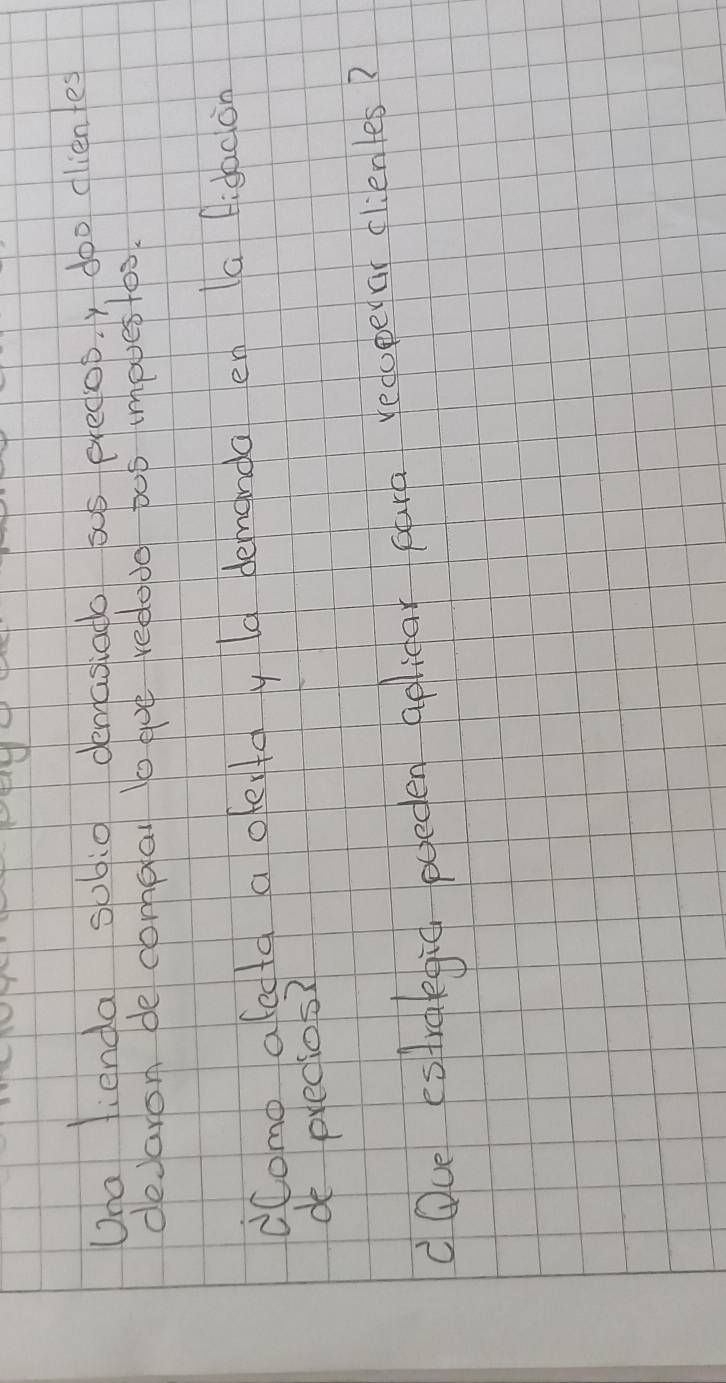 Una tienda subio demasiado sus precios. y sos clientes
dejaron de comprar lo que redujo sus impuestos.
¿Como afecta a oferta y la demanda en la fijación
de precios?
¿Que estrategia pueden aplicar para recuperar clientes?